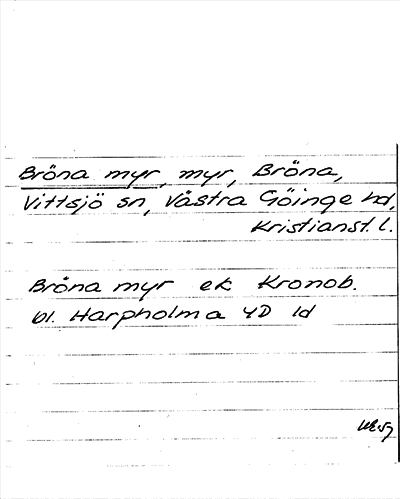 Bröna myr, myr, Bröna,
Vittsjö sn, Västra Göinge hd,
Kristianst. l.
Bröna myr ek Kronob.
bl. Harpholma 4D 1d